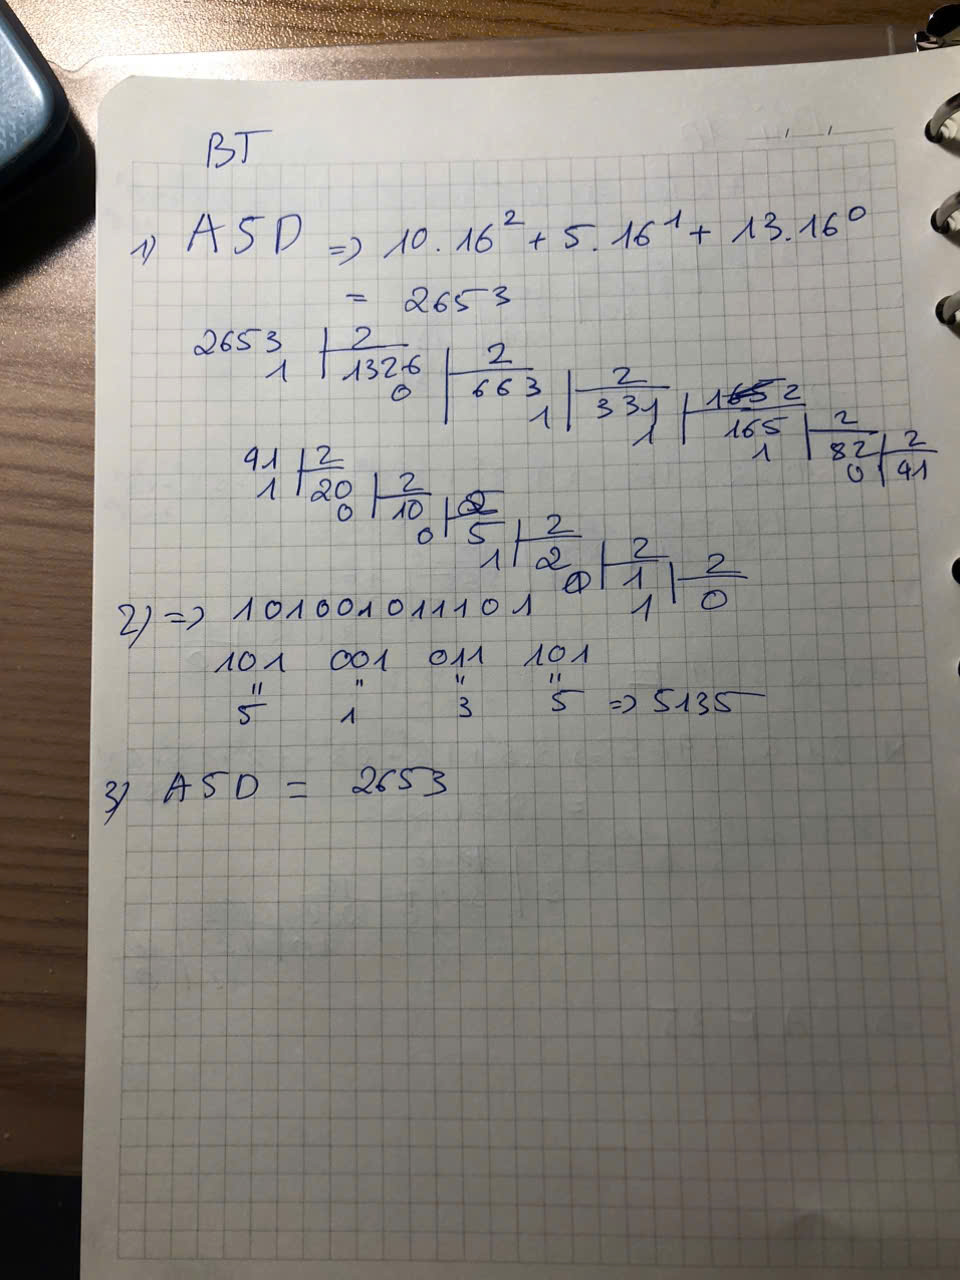 BT
1) A5D => 10.16² + 5.16¹ + 13.16⁰
= 2653
2653 | 2
1 1326 | 2
0 663 | 2
1 331 | 2
1 165 | 2
1 82 | 2
0 41
41 | 2
1 20 | 2
0 10 | 2
0 5 | 2
1 2 | 2
0 1 | 2
1 0
2) => 101001011101
101 001 011 101
" " " "
5 1 3 5 => 5135
3) A5D = 2653